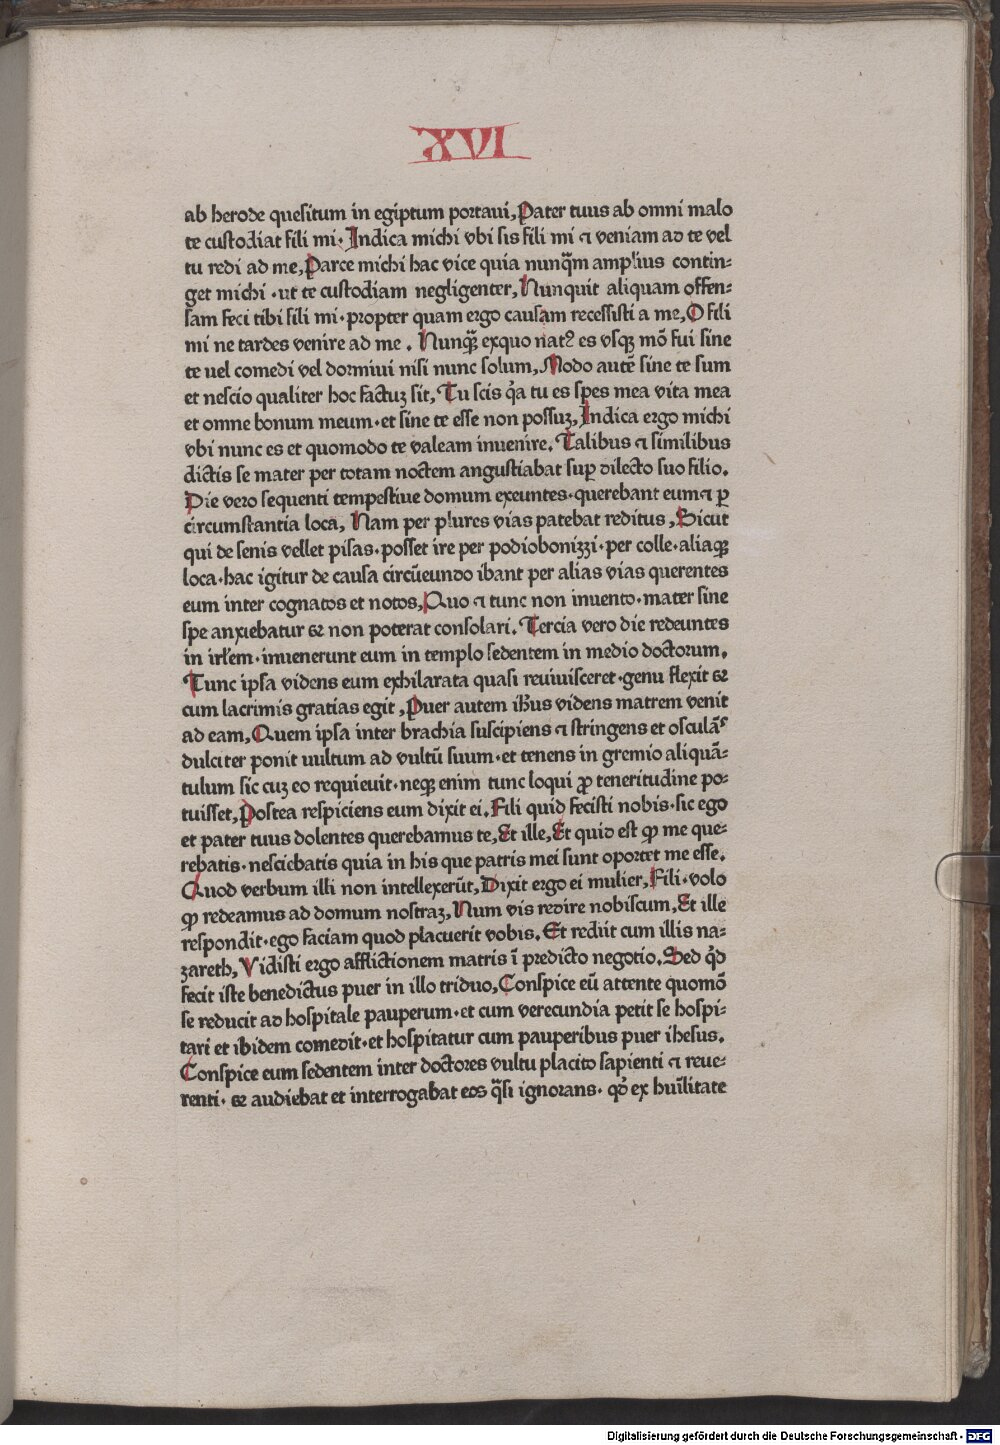 XVI
ab herode quesitum in egiptum portaui, Pater tuus ab omni malo
te custodiat fili mi· Indica michi vbi sis fili mi ⁊ veniam ad te vel
tu redi ad me, Parce michi hac vice quia nunq̄m amplius contin⸗
get michi · ut te custodiam negligenter, Nunquit aliquam offen⸗
sam feci tibi fili mi· propter quam ergo causam recessisti a me, O fili
mi ne tardes venire ad me . Nunqꝫ exquo natꝰ es vsqꝫ mō fui sine
te uel comedi vel dormiui nisi nunc solum, Modo autē sine te sum
et nescio qualiter hoc factuꝫ sit, Tu scis q̇a tu es spes mea vita mea
et omne bonum meum · et sine te esse non possuꝫ, Indica ergo michi
vbi nunc es et quomodo te valeam inuenire. Talibus ⁊ similibus
dictis se mater per totam noctem angustiabat suꝑ dilecto suo filio.
Die vero sequenti tempestiue domum exeuntes· querebant eum ⁊ ꝑ
circumstantia loca, Nam per plures vias patebat reditus , Sicut
qui de senis vellet pisas· posset ire per podiobonizzi· per colle· aliaqꝫ
loca· hac igitur de causa circūeundo ibant per alias vias querentes
eum inter cognatos et notos, Quo ⁊ tunc non inuento· mater sine
spe anxiebatur ⁊ non poterat consolari. Tercia vero die redeuntes
in irl̄em· inuenerunt eum in templo sedentem in medio doctorum.
Tunc ipsa videns eum exhilarata quasi reuiuisceret· genu flexit ⁊
cum lacrimis gratias egit , Puer autem ih̄us videns matrem venit
ad eam, Quem ipsa inter brachia suscipiens ⁊ stringens et osculāˢ
dulciter ponit uultum ad vultū suum· et tenens in gremio aliquā⸗
tulum sic cuꝫ eo requieuit· neqꝫ enim tunc loqui ꝓ teneritudine po⸗
tuisset, Postea respiciens eum dixit ei. Fili quid fecisti nobis· sic ego
et pater tuus dolentes querebamus te, Et ille, Et quid est ꝙ me que⸗
rebatis· nesciebatis quia in his que patris mei sunt oportet me esse.
Quod verbum illi non intellexerūt, Dixit ergo ei mulier, Fili· volo
ꝙ redeamus ad domum nostraꝫ, Num vis redire nobiscum, Et ille
respondit· ego faciam quod placuerit vobis. Et rediit cum illis na⸗
zareth, Vidisti ergo afflictionem matris ī predicto negotio. Sed q̇d
fecit iste benedictus puer in illo triduo, Conspice eū attente quomō
se reducit ad hospitale pauperum· et cum verecundia petit se hospi⸗
tari et ibidem comedit· et hospitatur cum pauperibus puer ihesus.
Conspice eum sedentem inter doctores vultu placito sapienti ⁊ reue⸗
renti· ⁊ audiebat et interrogabat eos q̄si ignorans· qđ ex hūilitate
Digitalisierung gefördert durch die Deutsche Forschungsgemeinschaft - DFG